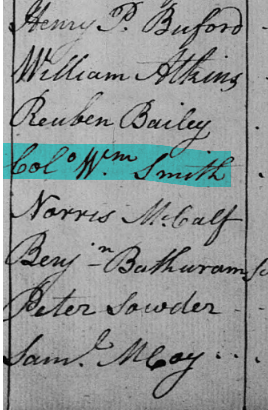 Henry P. Buford
William Atkins
Reuben Bailey
Colo Wm Smith
Norris McCalf
Benjn Bathuram
Peter Sowder
Saml McCoy